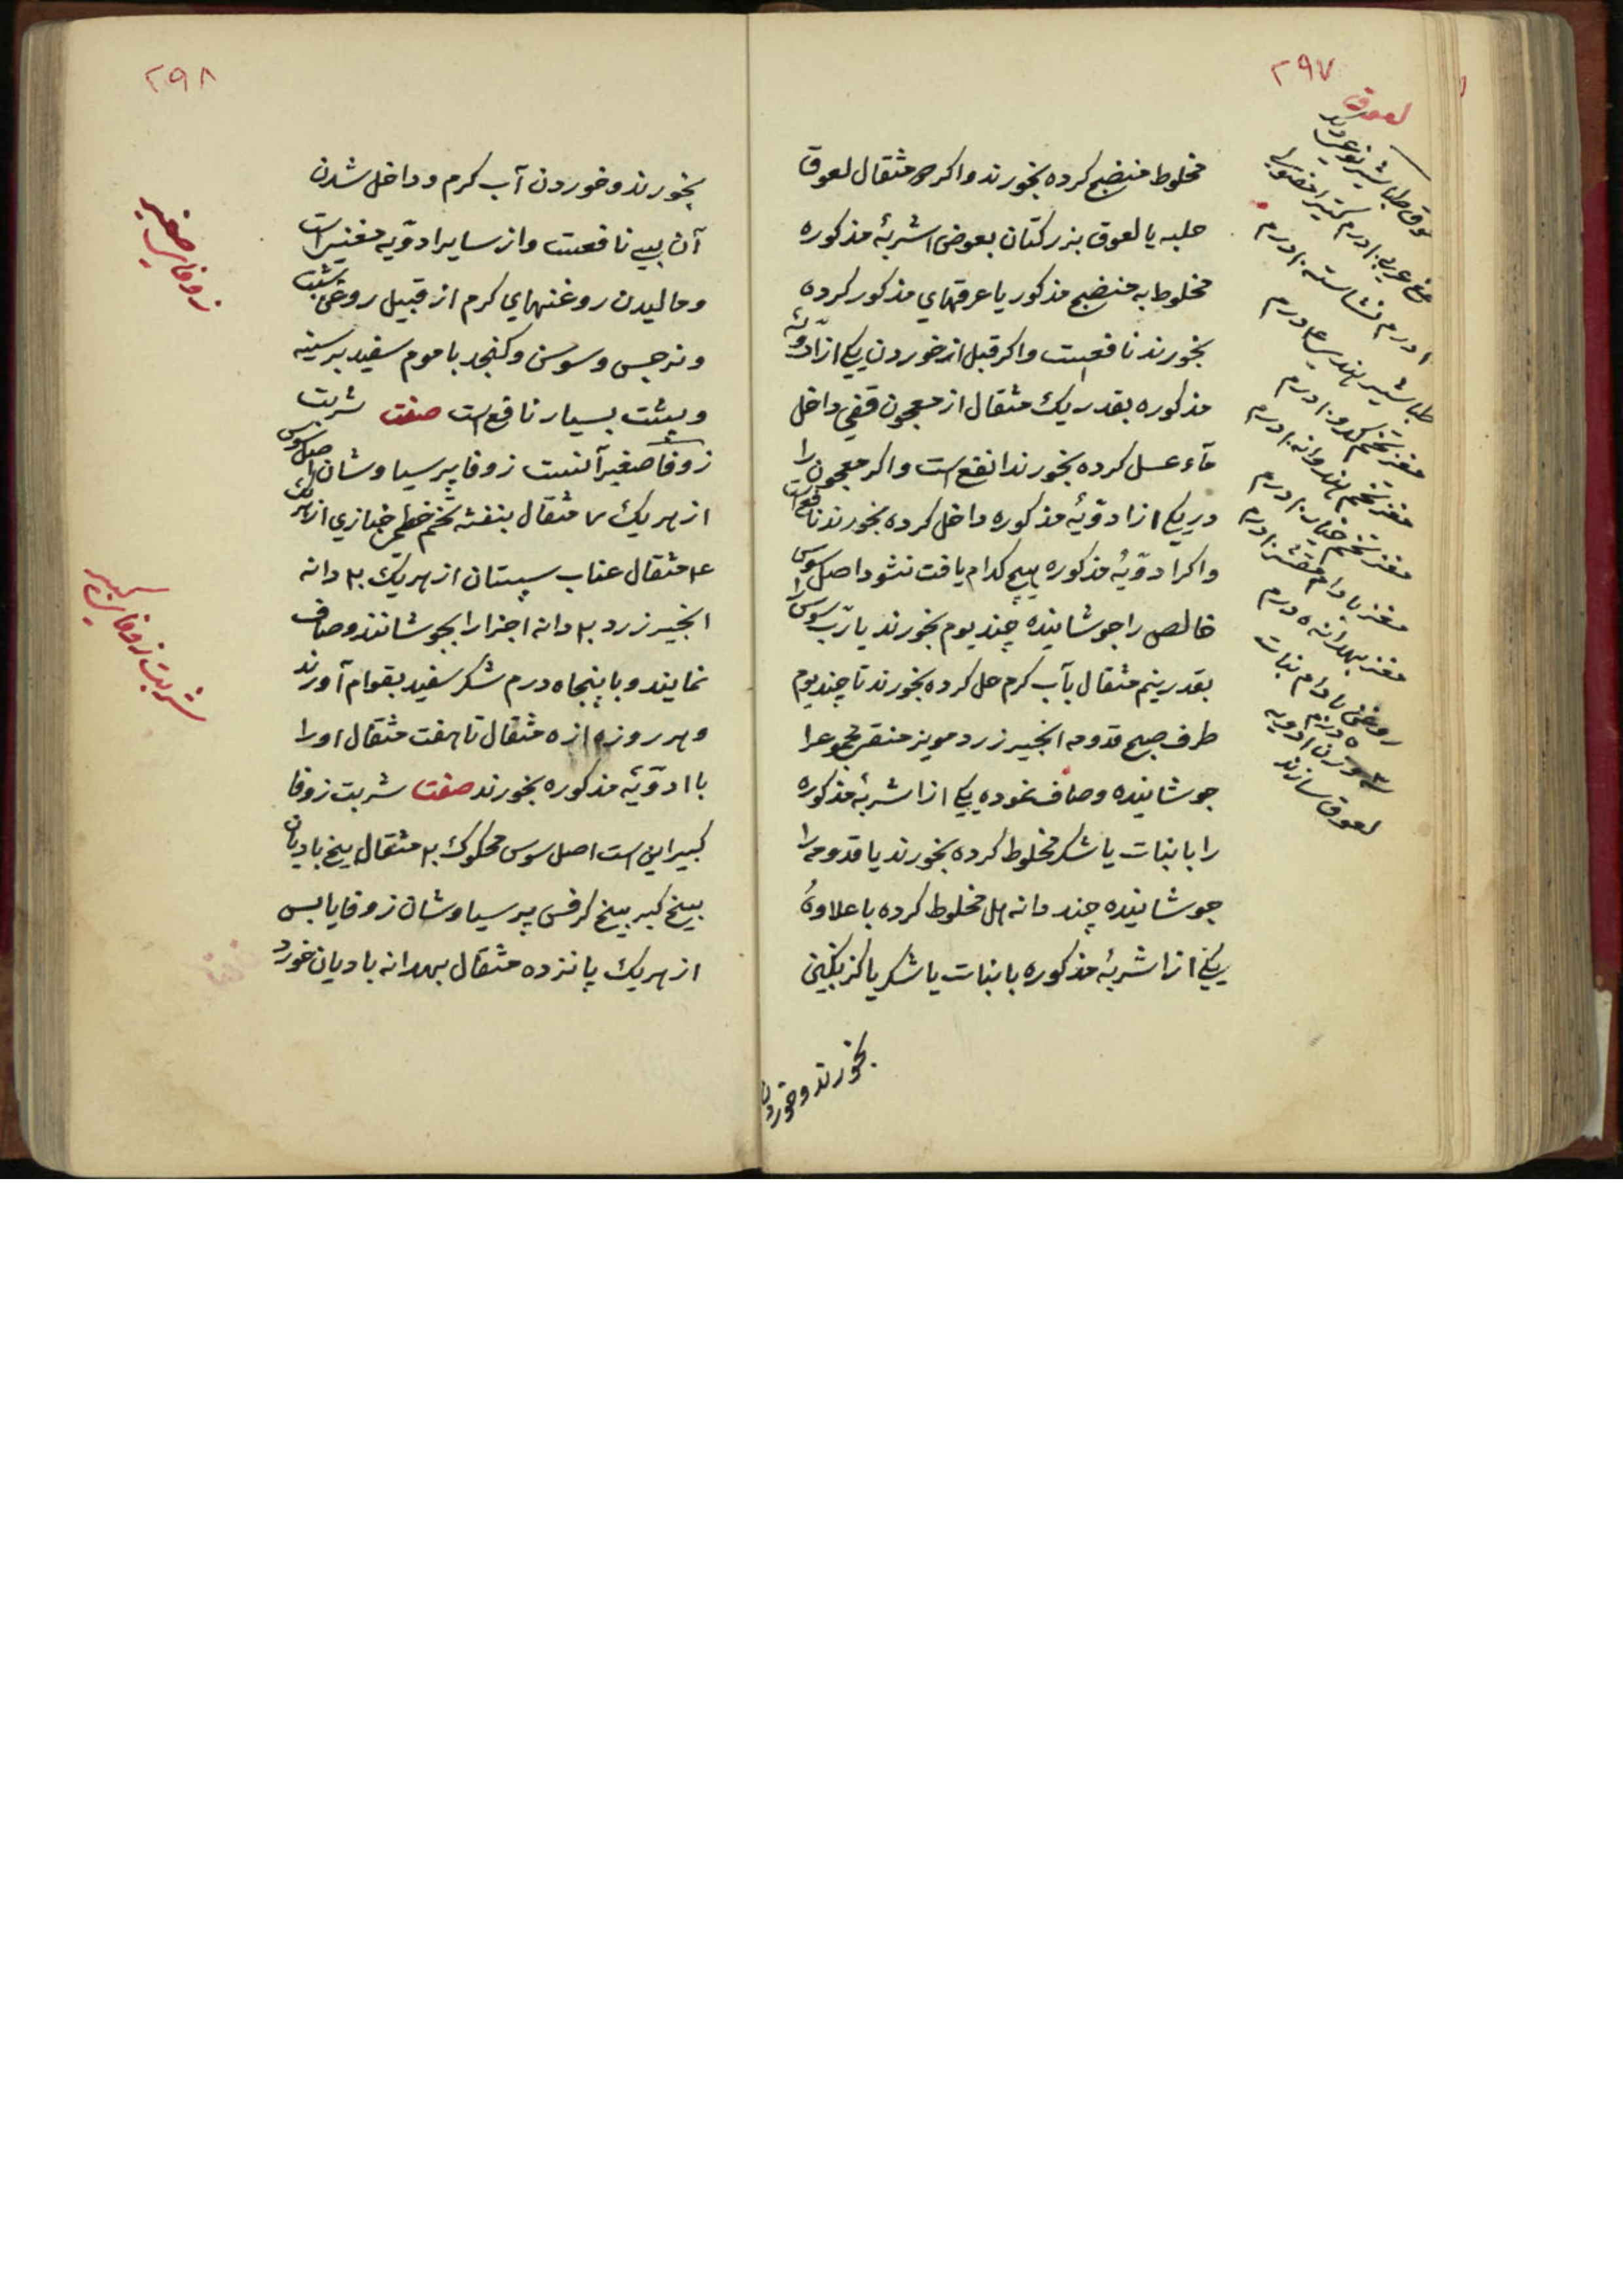 ۲۹۷
مخلوط منضج کرده بخورند واکر ۵ مثقال لعوق
حلبه یا لعوق بزرکتان بعوض اشربهٔ مذکوره
مخلوط به منضج مذکور یا عرقهای مذکور کرده
بخورند نافعست واکر قبل از خوردن یکی از ادّویّهٔ
مذکوره بقدر یک مثقال از معجون قفی داخل
مآء عسل کرده بخورند انفع است واکر معجون را
در یکی از ادوّیهٔ مذکوره داخل کرده بخورند نافع است
واکر ادوّیهٔ مذکوره هیچ کدام یافت نشود اصل سوس
خالص را جوشانیده چند یوم بخورند یا ربّ سوس را
بقدر نیم مثقال بآب کرم حل کرده بخورند تا چند یوم
طرف صبح قدومه انجیر زرد مویز منقی مجموعرا
جوشانیده وصاف نموده یکی از اشربهٔ مذکوره
را با نبات یا شکر مخلوط کرده بخورند یا قدومه را
جوشانیده چند دانه هل مخلوط کرده با علاوهٔ
یکی از اشربهٔ مذکوره با نبات یا شکر یا کزنکبین
بخورند وخوردن
لعوق
لعوق طباشیر نوعی دیکر
صمغ عربی ۱۰ درم کتیرا
۱۰ درم نشاسته ۱۰ درم
طباشیر هندی ۴ درم
مغز تخم کدو ۱۰ درم
مغز تخم هندوانه ۱۰ درم
مغز تخم خیار ۱۰ درم
مغز بادام مقشر ۱۰ درم
مغز بهدانه ۵ درم
روغن بادام نبات
۵ درم
۳ وزن ادویه
لعوق سازند
۲۹۸
بخورند وخوردن آب کرم وداخل شدن
آن بسی نافعست واز سایر ادوّیه مغنیست
ومالیدن روغنهای کرم از قبیل روغن شبت
ونرجس وسوسن وکنجد با موم سفید بر سینه
وپشت بسیار نافع است صفت شربت
زوفا صغیر آنست زوفا پرسیاوشان اصل سوس
از هر یک ۷ مثقال بنفشه تخم خطمی خبازی از هر یک
۴ مثقال عناب سپستان از هر یک ۲۰ دانه
انجیر زرد ۲۰ دانه اجزا را بجوشانند وصاف
نمایند وبا پنجاه درم شکر سفید بقوام آورند
وهر روزه از ۵ مثقال تا هفت مثقال او را
با ادوّیهٔ مذکوره بخورند صفت شربت زوفا
کبیر این است اصل سوس محکوک ۲۰ مثقال بیخ بادیان
بیخ کبر بیخ کرفس پرسیاوشان زوفا یابس
از هر یک پانزده مثقال بهدانه بادیان خورد
زوفای صغیر
شربت زوفای کبیر